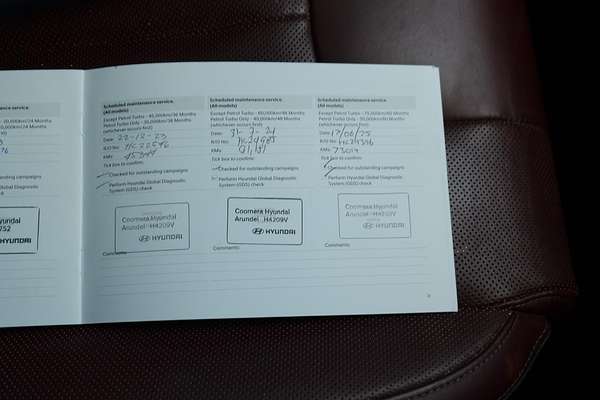 20,000km/24 Months
0,000km/24 Months
Hyundai
752
HYUNDAI
Scheduled maintenance service.
(All models)
Except Petrol Turbo - 45,000km/36 Months
Petrol Turbo Only - 30,000km/36 Months
(whichever occurs first)
Date: 22-12-23
R/O No: HC22596
KMs:
Tick box to confirm:
Checked for outstanding campaigns
Perform Hyundai Global Diagnostic
System (GDS) check
Coomera Hyundai
Arundel H4209V
HYUNDAI
Comments:
Scheduled maintenance service.
(All models)
Except Petrol Turbo - 60,000km/48 Months
Petrol Turbo Only - 40,000km/48 Months
(whichever occurs first)
Date: 31-7-24
R/O No:
KMs:
Tick box to confirm:
Checked for outstanding campaigns
Perform Hyundai Global Diagnostic
System (GDS) check
Coomera Hyundai
Arundel H4209V
HYUNDAI
Comments:
Scheduled maintenance service.
(All models)
Except Petrol Turbo - 75,000km/60 Months
Petrol Turbo Only - 50,000km/60 Months
(whichever occurs first)
Date: 17/06/25
R/O No: HC29396
KMs: 73019
Tick box to confirm:
Checked for outstanding campaigns
Perform Hyundai Global Diagnostic
System (GDS) check
Coomera Hyundai
Arundel H4209V
HYUNDAI
Comments: